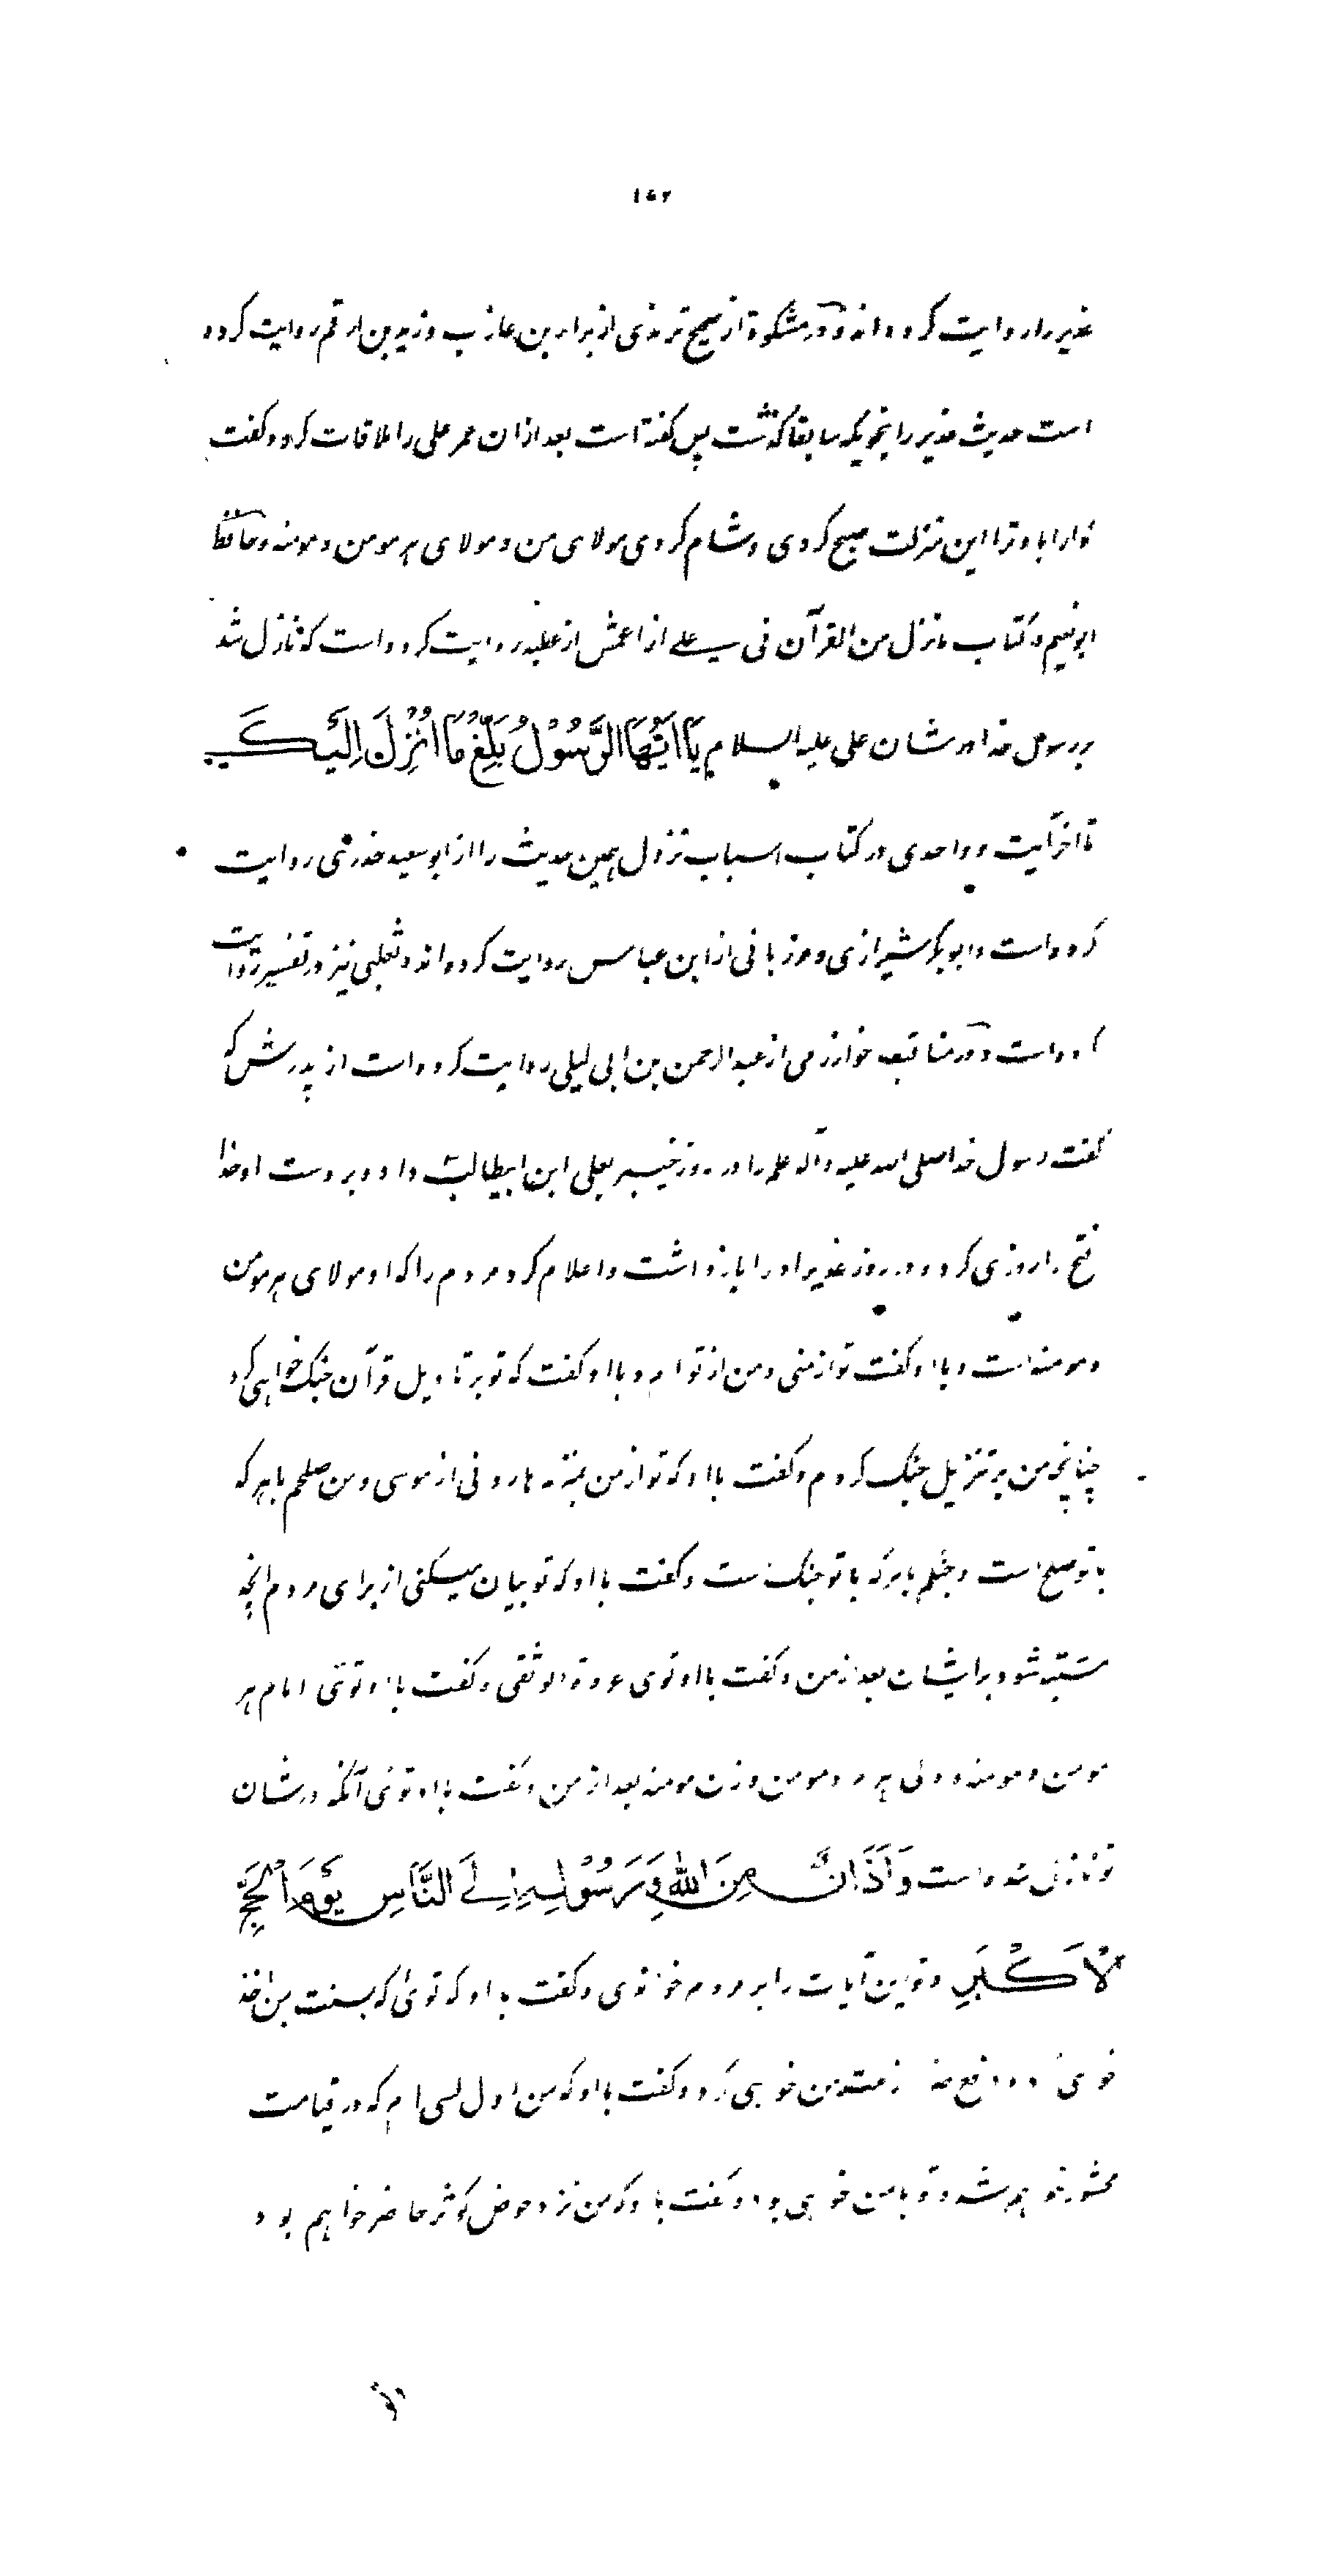 ۱۵۲
غدیر را روایت کرده‌اند و در مشکوة از صحیح ترمذی از براء بن عازب و زید بن ارقم روایت کرده
است حدیث غدیر را بنحویکه سابقا گذشت پس گفته است بعد ازان عمر علی را ملاقات کرد و گفت
گوارا باد ترا این منزلت صبح کردی و شام کردی مولای من و مولای هر مومن و مومنه و حافظ
ابونعیم در کتاب ما نزل من القرآن فی علی از اعمش از عطیه روایت کرده است که نازل شد
بر رسول خدا در شان علی علیه السلام یَا اَیُّهَا الرَّسُوْلُ بَلِّغْ مَا اُنْزِلَ اِلَیْکَ
تا آخر آیت و واحدی در کتاب اسباب نزول همین حدیث را از ابو سعید خدری روایت
کرده است و ابوبکر شیرازی و مرزبانی از ابن عباس روایت کرده‌اند و ثعلبی نیز در تفسیر روایت
کرده است و در مناقب خوارزمی از عبد الرحمن بن ابی لیلی روایت کرده است از پدرش که
گفت رسول خدا صلی الله علیه و آله علم را در روز خیبر بعلی ابن ابیطالب داد و بر دست او خدا
فتح را روزی کرد و در روز غدیر او را باز داشت و اعلام کرد مردم را که او مولای هر مومن
و مومنه است و با او گفت تو از منی و من از توام و با او گفت که تو بر تاویل قرآن جنگ خواهی کرد
چنانچه من بر تنزیل جنگ کردم و گفت با او که تو از من بمنزله هارونی از موسی و من صلحم با هر که
با تو صلح است و جنگم با هر که با تو جنگ است و گفت با او که تو بیان میکنی از برای مردم آنچه
مشتبه شود بر ایشان بعد از من و گفت با او توی عروة الوثقی و گفت با او توئی امام هر
مومن و مومنه و ولی هر مرد مومن و زن مومنه بعد از من و گفت با او توئی آنکه در شان
تو نازل شده است وَ اَذَانٌ مِنَ اللهِ وَ رَسُوْلِهِ اِلَی النَّاسِ یَوْمَ الْحَجِّ
الْاَکْبَرِ و تو این آیات را بر مردم خواندی و گفت با او که توئی که بسنت من اخذ
خواهی کرد و گفت با او که من اول کسی‌ام که در قیامت
محشور خواهم شد و تو با من خواهی بود و گفت با او که من نزد حوض کوثر حاضر خواهم بود